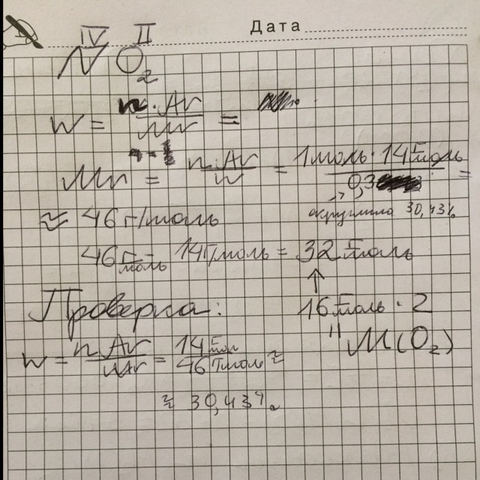 Дата
IV II
NO₂
W = n·Ar/Mr =
Mr = n·Ar/W = 1моль·14г/моль/0,3 =
округлила 30,43%
≈ 46 г/моль
46 г/моль 14г/моль = 32 г/моль
↑
Проверка: 16г/моль · 2
" M(O₂)
W = n·Ar/Mr = 14 г/моль/46 г/моль ≈
≈ 30,43%